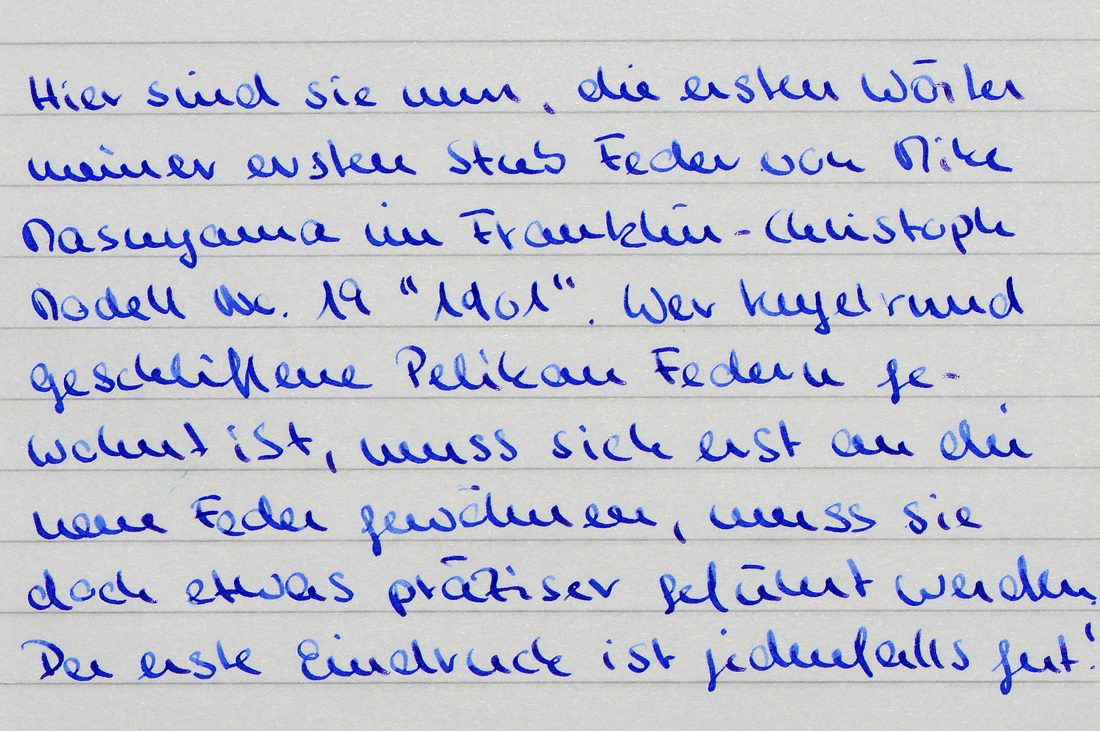 Hier sind sie nun, die ersten Wörter
meiner ersten Stub Feder von Mike
Masuyama im Franklin-Christoph
Modell Nr. 19 "1901". Wer kugelrund
geschliffene Pelikan Federn ge-
wohnt ist, muss sich erst an die
neue Feder gewöhnen, muss sie
doch etwas präziser geführt werden.
Der erste Eindruck ist jedenfalls gut!